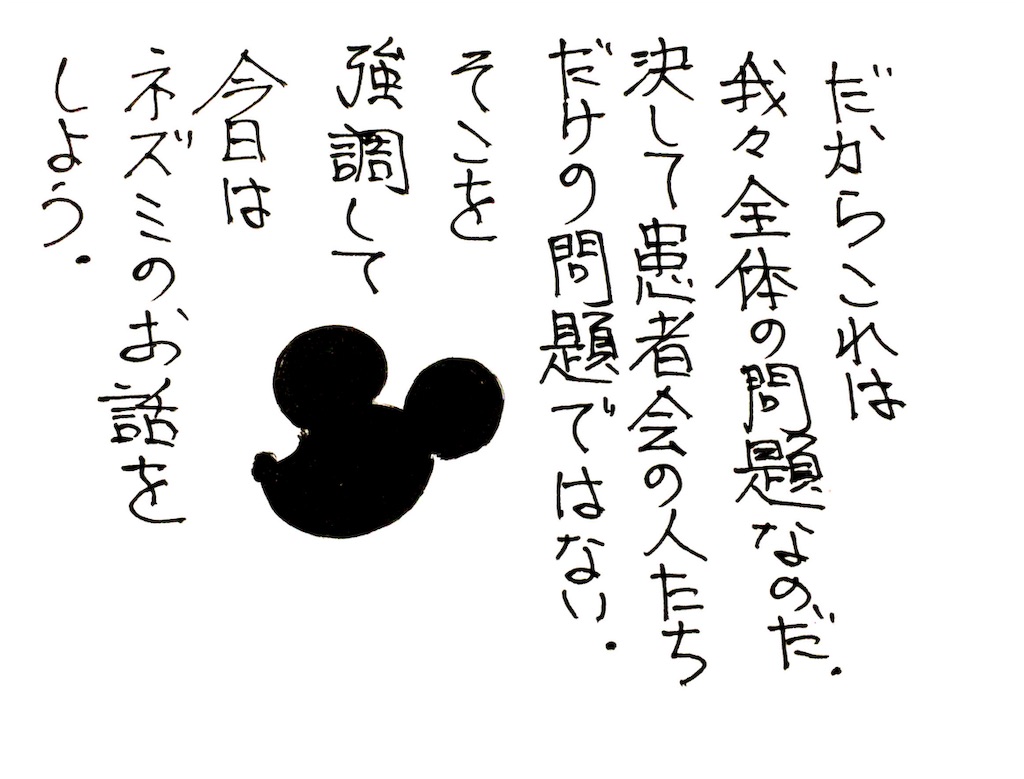 だからこれは
我々全体の問題なのだ.
決して患者会の人たち
だけの問題ではない.
そこを
強調して
今日は
ネズミのお話を
しよう.